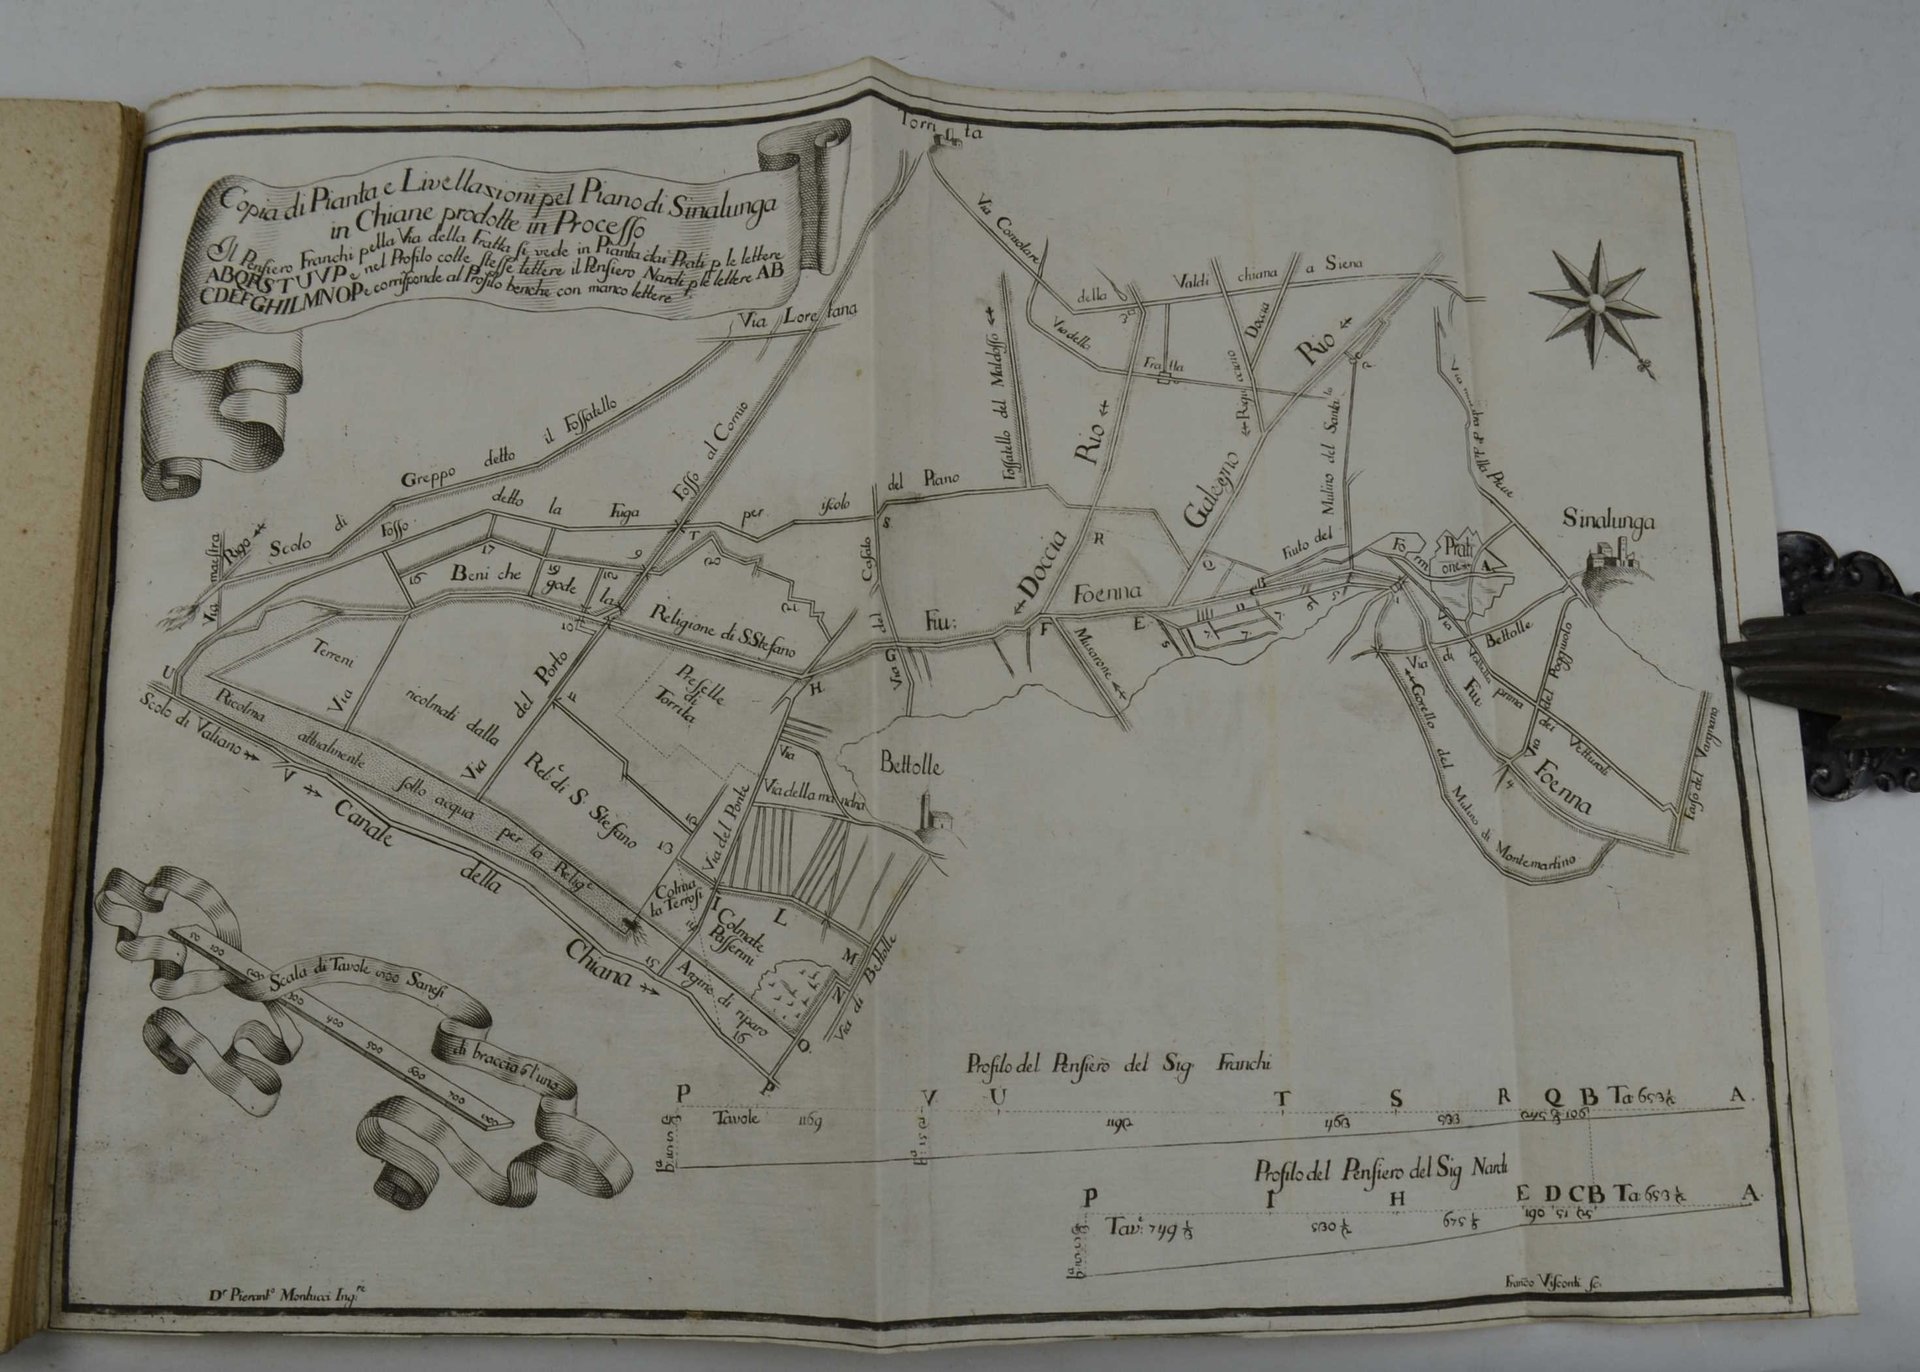 Copia di Pianta e Livellazioni pel Piano di Sinalunga
in Chiane prodotte in Processo
Il Pensiero Franchi pella Via della Fratta si vede in Pianta dai Prati p le lettere
ABQRSTUVP e nel Profilo colle stesse lettere il Pensiero Nardi p le lettere AB
CDEFGHILMNOP e corrisponde al Profilo benche con manco lettere
Torrita
Via Consolare
della
Valdichiana a Siena
Via Loretana
Via della
Fratta
Fossatello del Maldosso
Rio
Doccia
Rigucciaio
Rio
Galegno
Fiuto del Mulino del Santo
Via
della Pieve
Greppo detto il Fossatello
Scolo di
Rigo
Via maestra
Fosso detto la Fuga per iscolo
del Piano
Fosso al Cornio
S
T
R
Q
Doccia
17
16
19
12
9
10
Beni che gode la
Religione di S. Stefano
Fiu: Foenna
Casato
G
H
F
E
Misarone
Prati
A
B
Sinalunga
Bettolle
Via
di
Fiu
Foenna
Via del Poggiuolo
prima
dei Vetturali
Gorello del Mulino di Montemartino
del Vargnano
Terreni
Via
ricolmati dalla
Via del Porto
F
Preselle
di
Torrita
Rel.e di S. Stefano
U
Scolo di Valiano
Ricolma attualmente sotto acqua per la Relig.e
V
Canale
della
Chiana
Via
Via della mandria
Bettolle
Via del Ponte
15
13
Colma
la Terrosi
I
L
M
N
Colmate
Passerini
15
Argine di
riparo
16
O.
P
Via di Bettolle
Scala di Tavole 800 Sanesi
di braccia 6 l'uno
50 100 200 300 400 500 600 700 800
Profilo del Pensiero del Sig. Franchi
P V U T S R Q B Ta: 653 ½ A.
Tavole 1169
1192
463
533
106
Profilo del Pensiero del Sig Nardi
P I H E D C B Ta: 653 ½ A.
Tav.e 749 ⅓
530 ½
190
D.r Pierant.o Montucci Ing.re
Franco Visconti sc.